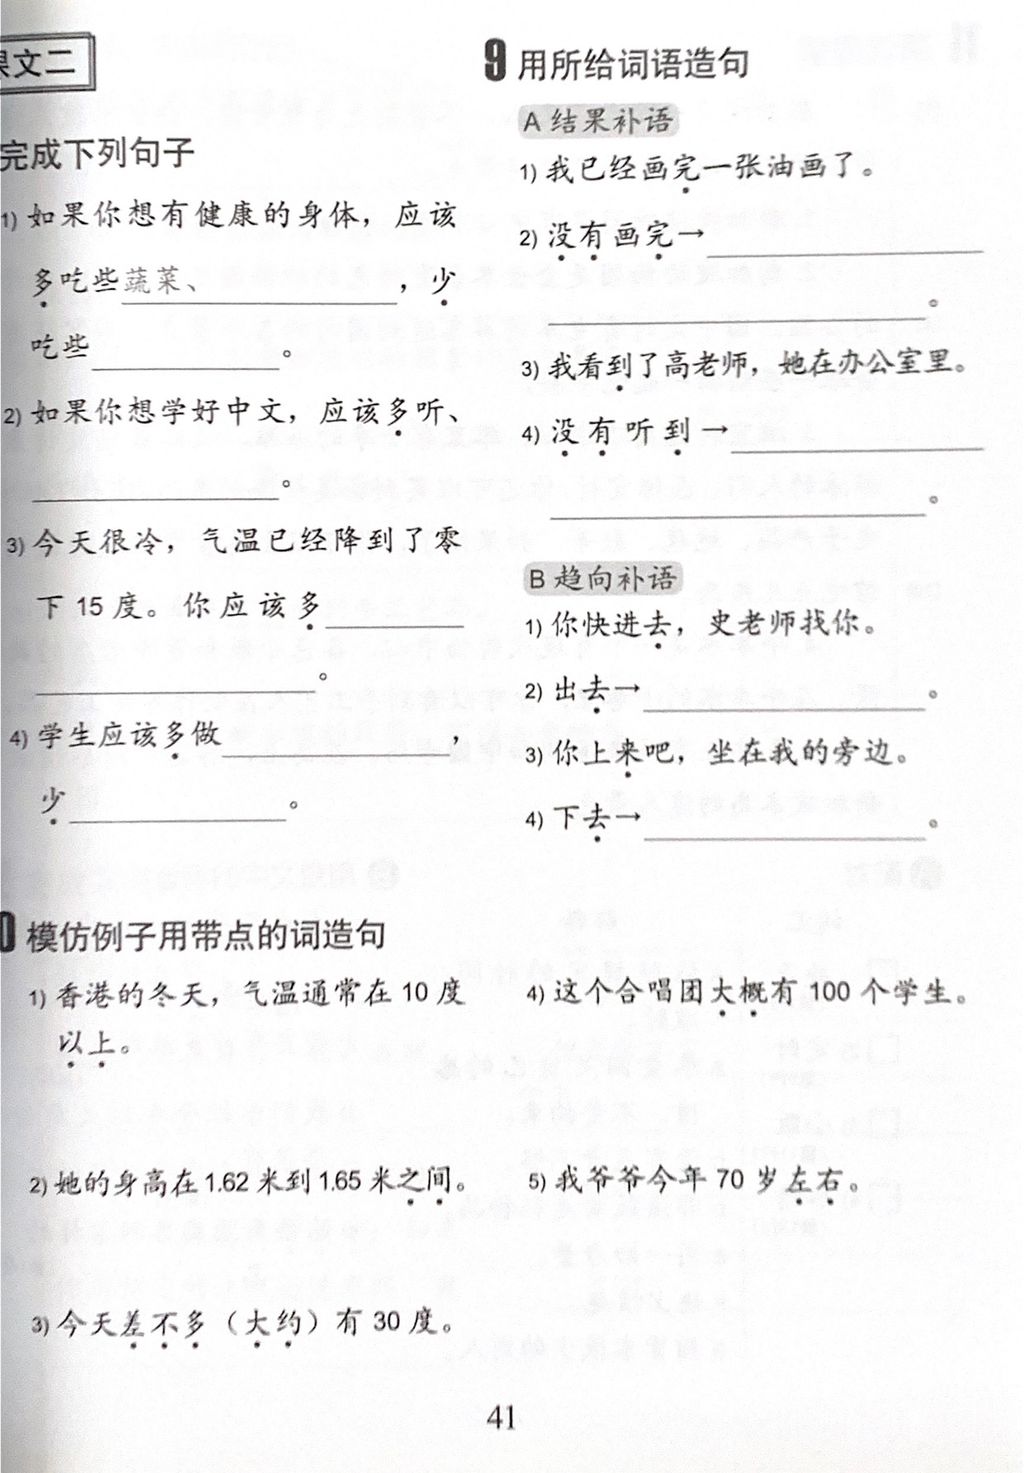 课文二
完成下列句子
1) 如果你想有健康的身体，应该
多吃些蔬菜、，少
吃些。
2) 如果你想学好中文，应该多听、
。
3) 今天很冷，气温已经降到了零
下 15 度。你应该多
。
4) 学生应该多做，
少。
9 用所给词语造句
A 结果补语
1) 我已经画完一张油画了。
2) 没有画完→
。
3) 我看到了高老师，她在办公室里。
4) 没有听到→
。
B 趋向补语
1) 你快进去，史老师找你。
2) 出去→。
3) 你上来吧，坐在我的旁边。
4) 下去→。
0 模仿例子用带点的词造句
1) 香港的冬天，气温通常在 10 度
以上。
2) 她的身高在1.62 米到1.65 米之间。
3) 今天差不多（大约）有 30 度。
4) 这个合唱团大概有 100 个学生。
5) 我爷爷今年 70 岁左右。
41